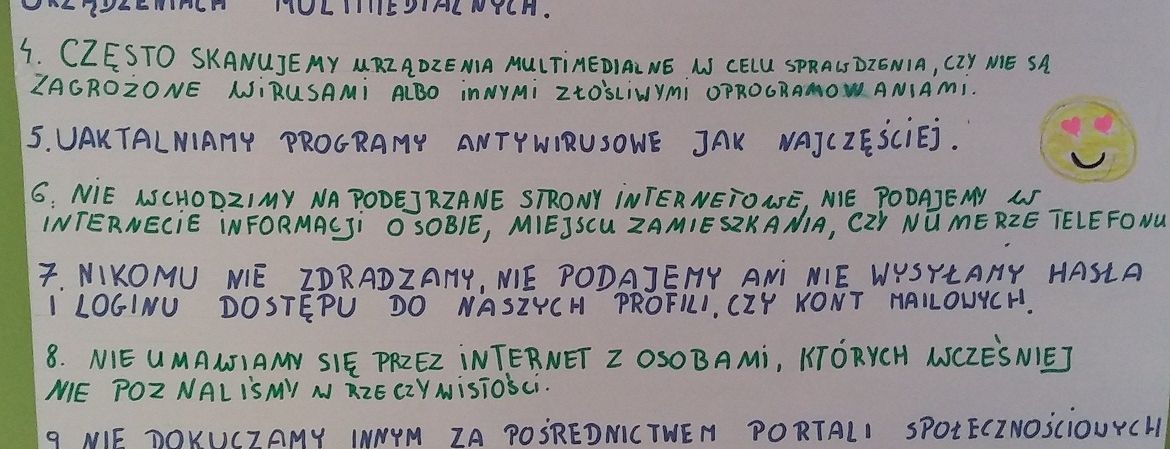 URZĄDZENIACH MULTIMEDIALNYCH.
4. CZĘSTO SKANUJEMY URZĄDZENIA MULTIMEDIALNE W CELU SPRAWDZENIA, CZY NIE SĄ
ZAGROŻONE WIRUSAMI ALBO INNYMI ZŁOŚLIWYMI OPROGRAMOWANIAMI.
5. UAKTALNIAMY PROGRAMY ANTYWIRUSOWE JAK NAJCZĘŚCIEJ.
6. NIE WCHODZIMY NA PODEJRZANE STRONY INTERNETOWE, NIE PODAJEMY W
INTERNECIE INFORMACJI O SOBIE, MIEJSCU ZAMIESZKANIA, CZY NUMERZE TELEFONU
7. NIKOMU NIE ZDRADZAMY, NIE PODAJEMY ANI NIE WYSYŁAMY HASŁA
I LOGINU DOSTĘPU DO NASZYCH PROFILI, CZY KONT MAILOWYCH.
8. NIE UMAWIAMY SIĘ PRZEZ INTERNET Z OSOBAMI, KTÓRYCH WCZEŚNIEJ
NIE POZNALIŚMY W RZECZYWISTOŚCI.
9 NIE DOKUCZAMY INNYM ZA POŚREDNICTWEM PORTALI SPOŁECZNOŚCIOWYCH